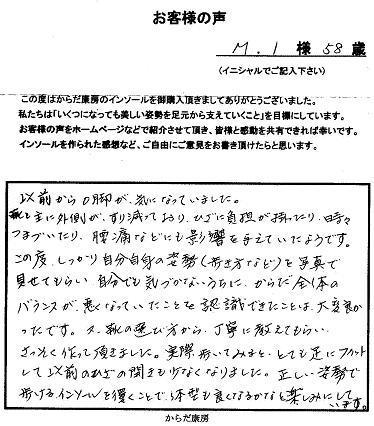 お客様の声
M.I 様 58 歳
(イニシャルでご記入下さい)
この度はからだ康房のインソールを御購入頂きましてありがとうございました。
私たちは「いくつになっても美しい姿勢を足元から支えていくこと」を目標にしています。
お客様の声をホームページなどで紹介させて頂き、皆様と感動を共有できれば幸いです。
インソールを作られた感想など、ご自由にご意見をお書き頂けたらと思います。
以前からO脚が、気になっていました。
靴も主に外側が、すり減っており、ひざに負担が掛ったり、時々
つまづいたり、腰痛などにも影響を与えていたようです。
この度、しっかり自分自身の姿勢(歩き方など)を写真で
見せてもらい、自分でも気づかないうちに、からだ全体の
バランスが、悪くなっていたことを認識できたことは、大変良か
ったです。又、靴の選び方から、丁寧に教えてもらい、
さっそく作って頂きました。実際、歩いてみると、とても足にフィット
して以前のひざの開きも少なくなりました。正しい姿勢で
歩けるインソールを履くことで、体型も良くなるかなと楽しみにして
います。
からだ康房